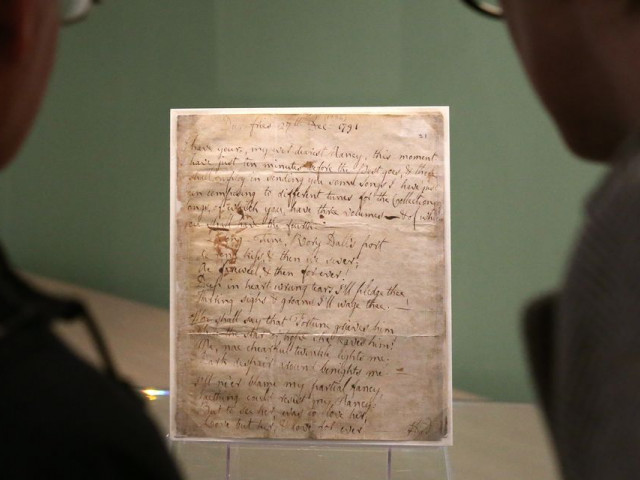 Dumfries 27th Dec 1791
21
have yours, my ever dearest Nancy, this moment
have just ten minutes before the Post goes, & these
employ in sending you some Songs I have just
in composing to different tunes for the Collection of
Songs, of which you have three volumes — & of which
you shall have the fourth. —
Tune, Rory Dall's port
kiss & then we sever;
Ae fareweel & then for ever!
Deep in heart-wrung tears I'll pledge thee
Warring sighs & groans I'll wage thee. —
Who shall say that Fortune grieves him
While the star of hope she leaves him:
Me, nae chearfull twinkle lights me:
Dark despair around benights me —
I'll ne'er blame my partial fancy,
Naething could resist my Nancy:
But to see her, was to love her,
Love but her, & love for ever